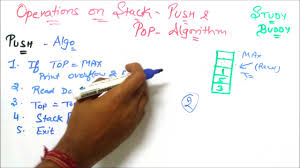 Operations on Stack - Push &
Pop - Algorithm
STUDY
BUDDY
PUSH - Algo
1. If TOP = MAX
Print overflow &
2. Read Da
3. TOP = TO
4. Stack [
5. Exit
MAX
1
5
3
2